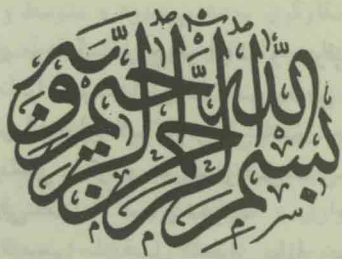 بسم الله الرحمن الرحیم وبه